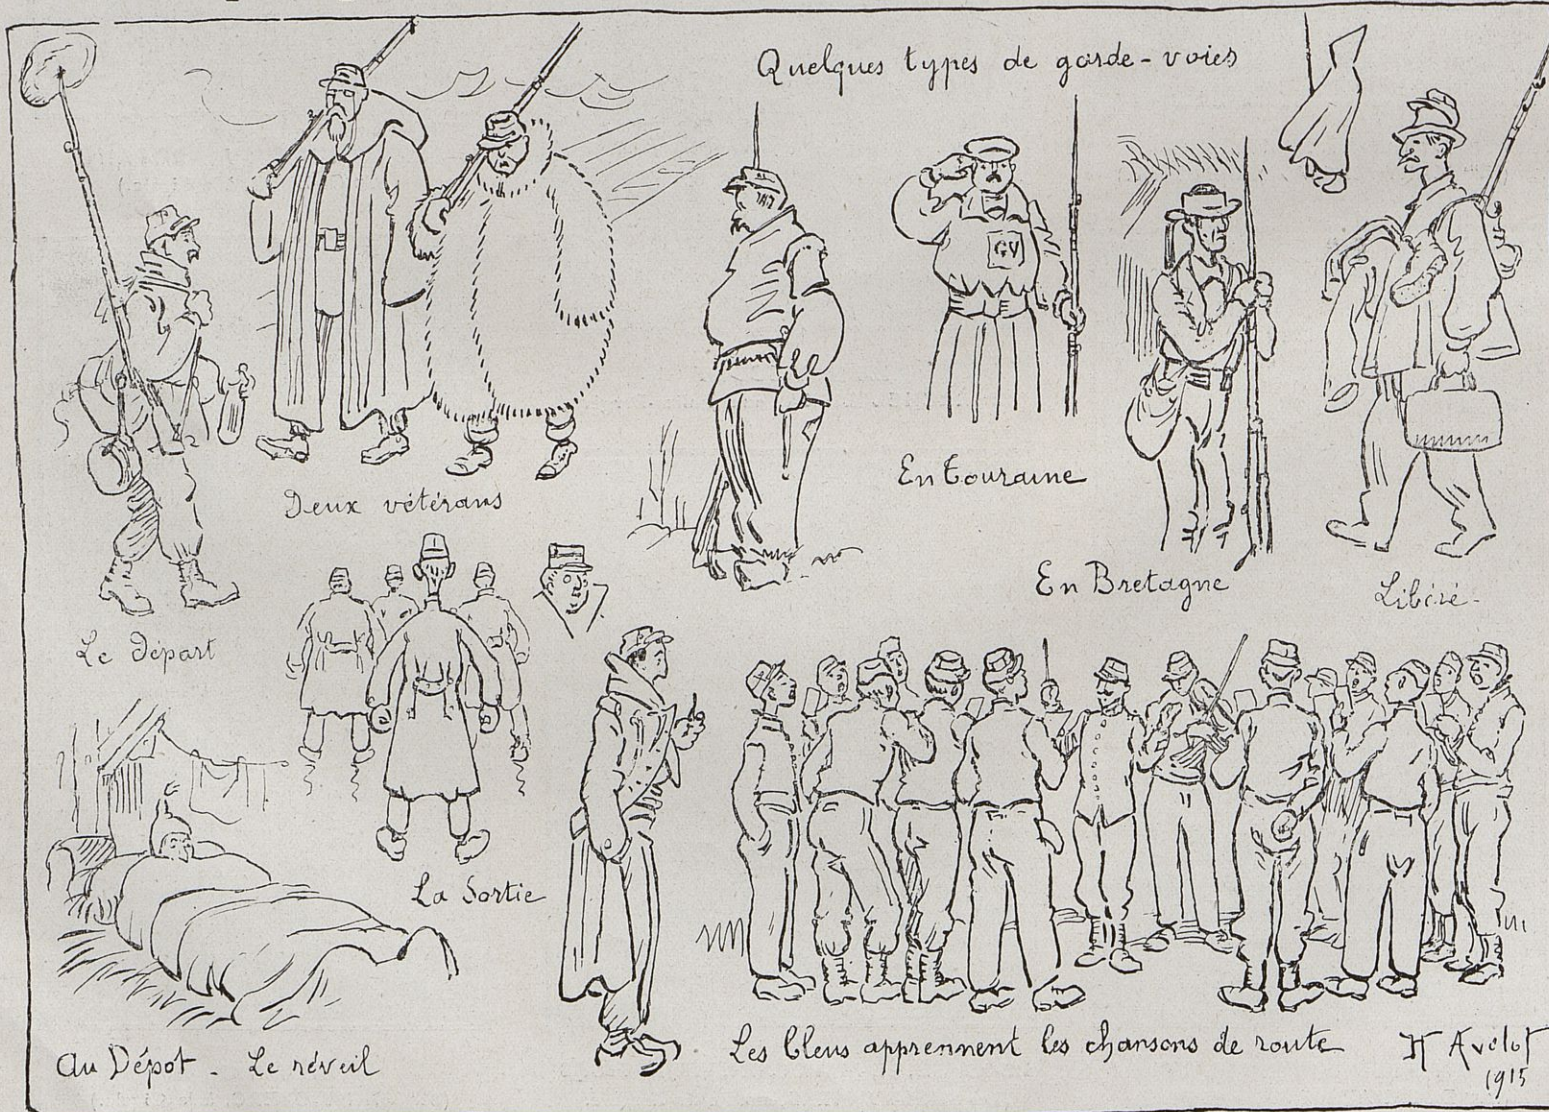 Quelques types de garde-voies
GV
Deux vétérans
En Touraine
En Bretagne
Libéré.
Le Départ
La Sortie
Au Dépôt. Le réveil
Les bleus apprennent les chansons de route
H Avelot
1915